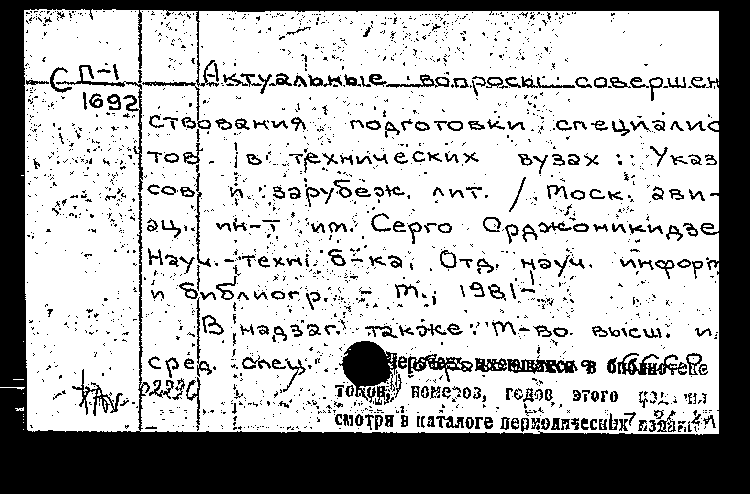 С П-1 Актуальные вопросы совершен
1692
ствования подготовки специалис
тов в технических вузах: Указ.
сов. и зарубеж. лит. / Моск. ави-
ац. ин-т им. Серго Орджоникидзе
Науч.-техн. б-ка, Отд. науч. информ
и библиогр. - М., 1981-
В надзаг. также: М-во высш. и
сред. спец.
Перечень имеющихся в библиотеке
томов, номеров, годов этого
смотри в каталоге периодических изданий